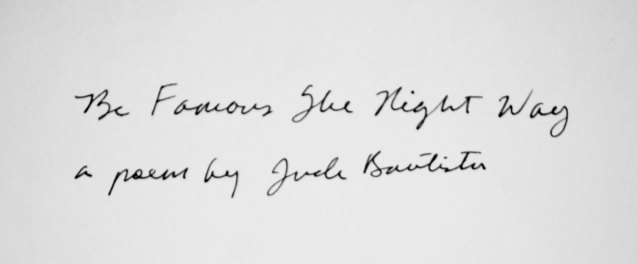 Be Famous The Right Way
a poem by Jude Bautista